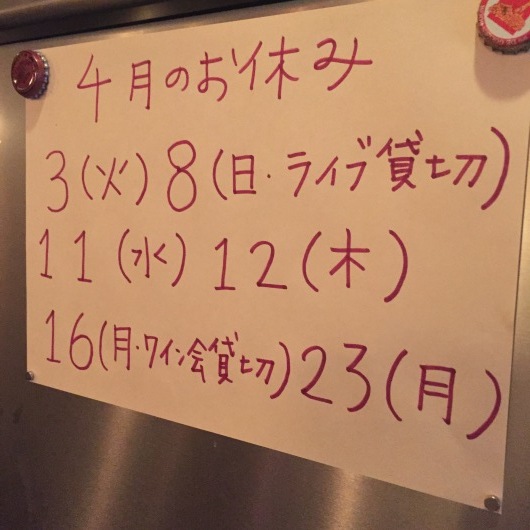 4月のお休み
3(火) 8(日・ライブ貸切)
11(水) 12(木)
16(月・ワイン会貸切) 23(月)